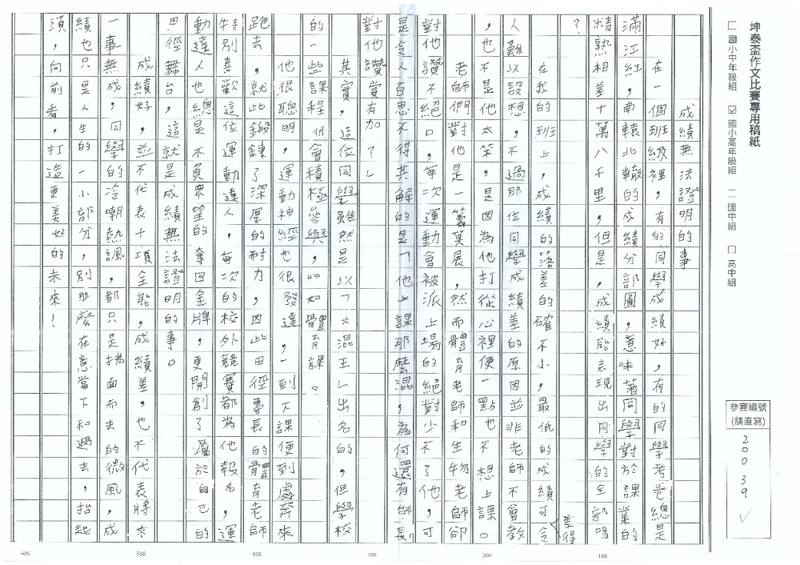 坤泰盃作文比賽專用稿紙
□ 國小中年級組 ☑ 國小高年級組 □ 國中組 □ 高中組
參賽編號
(請直寫)
20039
成績無法證明的事
在一個班級裡，有的同學成績好，有的同學考卷總是
滿江紅，南轅北轍的成績分部圖，意味著同學對於課業的
精熟相差十萬八千里，但是，成績能表現出同學的全部嗎
？
在我的班上，成績的落差的確不小，最低的成績可令
人難以設想，不過那位同學成績差的原因並非老師不會教
，也不是他太笨，是因為他打從心裡便一點也不想上課。
老師們對他是一籌莫展，然而體育老師和生物老師卻
對他讚不絕口，每次運動會被派上場的絕對少不了他，可
是令人百思不得其解的是「他上課那麼混，為何還有師長
對他讚賞有加？」
其實，這位同學雖然是以「大混王」出名的，但學校
的一些課程他會積極參與，比如體育課。
他很聰明，運動神經也很發達，一到下課便到處奔來
跑去，就此鍛鍊了深厚的耐力，因此田徑專長的體育老師
特別喜歡這位運動達人，每次的校外競賽都為他報名，運
動達人也總是不負眾望的奪回金牌，更開創了屬於自己的
田徑舞台，這就是成績無法證明的事。
成績好，並不代表十項全能，成績差，也不代表將來
一事無成，同學的冷嘲熱諷，都只是拂面而去的微風，成
績也只是人生的一小部分，別那麼在意當下和過去，抬起
頭，向前看，打造更美好的未來！
100
200
300
400
500
600